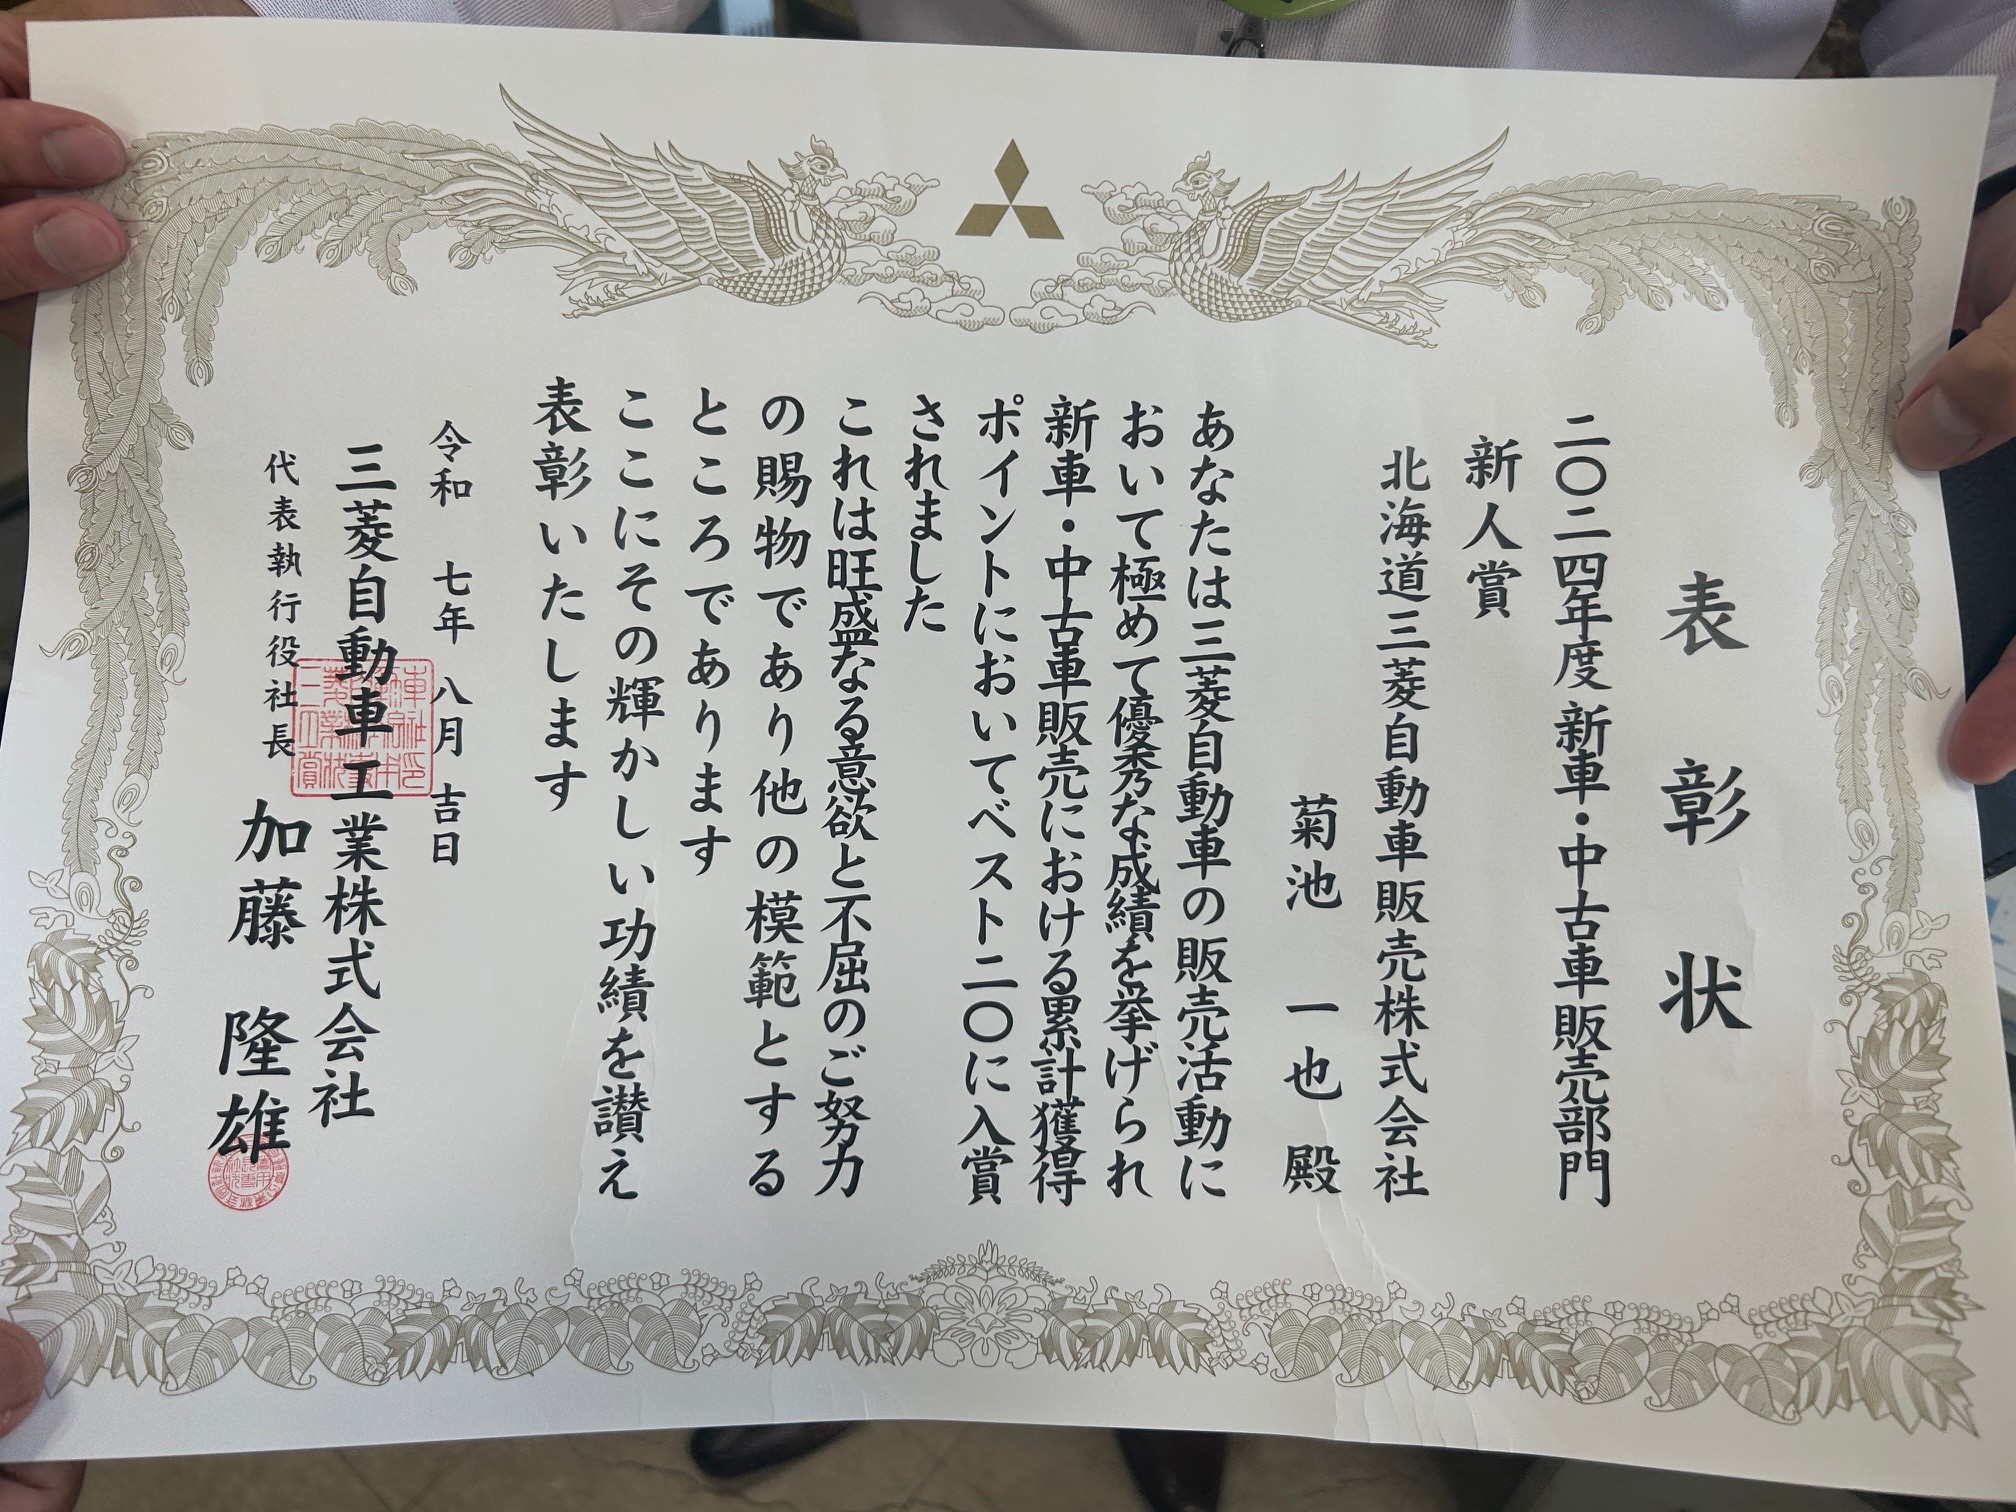 表彰状
二〇二四年度 新車・中古車販売部門
新人賞
北海道三菱自動車販売株式会社
菊池 一也 殿
あなたは三菱自動車の販売活動に
おいて極めて優秀な成績を挙げられ
新車・中古車販売における累計獲得
ポイントにおいてベスト二〇に入賞
されました
これは旺盛なる意欲と不屈のご努力
の賜物であり他の模範とする
ところであります
ここにその輝かしい功績を讃え
表彰いたします
令和 七年 八月 吉日
三菱自動車工業株式会社
代表執行役社長 加藤 隆雄